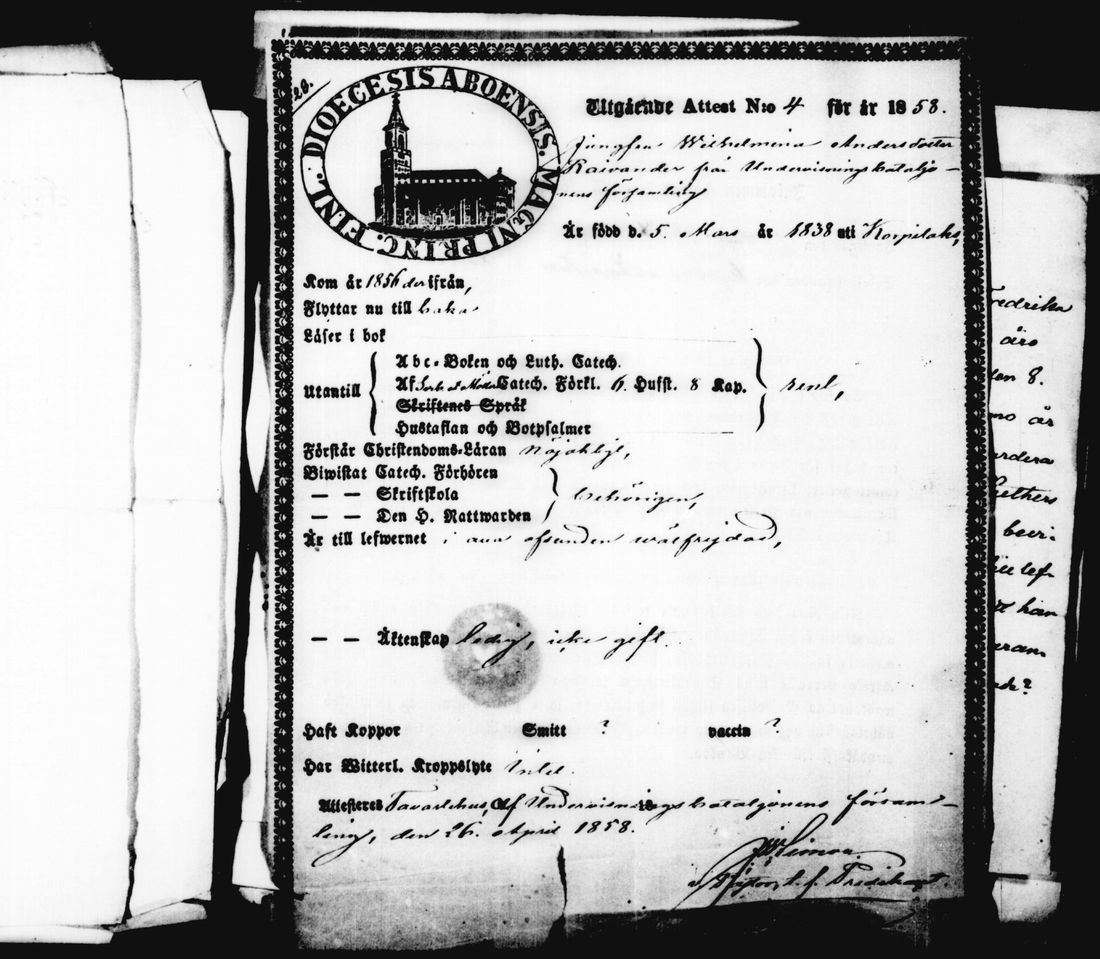 28.
DIOECESIS ABOENSIS. MAGNI PRINC. FINL.
Utgående Attest N:o 4 för år 1858.
Jungfru Wilhelmina Andersdotter
Raivander från Undervisningsbataljo-
nens församling
Är född d. 5. Mars år 1838 uti Korpilaks,
Kom år 1856 derifrån,
Flyttar nu till baka
Läser i bok
Abc-Boken och Luth. Catech.
Utantill Af Catech. Förkl. 6. Hufst. 8 Kap. rent,
Skriftenes Språk
Hustaflan och Botpsalmer
Förstår Christendoms-Läran nöjaktigt,
Biwistat Catech. Förhören
— — Skriftskola behörigen
— — Den H. Nattwarden
Är till lefwernet i wälfrejdad,
— — Äktenskap ledig, icke gift.
Haft Koppor Smitt ? vaccin ?
Har Witterl. Kroppslyte Intet.
Attesteres Tavastehus, Af Undervisningsbataljonens försam-
ling, den 26. April 1858.
fredrika
års
den 8.
år
Luthers